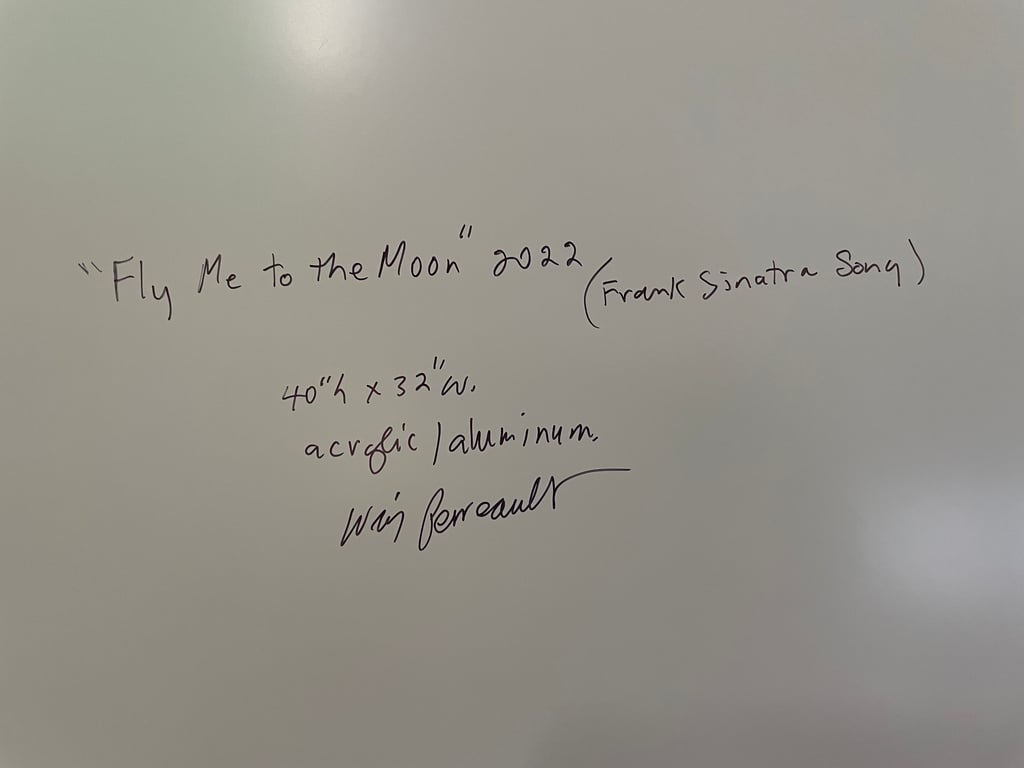 "Fly Me to the Moon" 2022 (Frank Sinatra Song)
40"h x 32"w.
acrylic / aluminum.
Win Perreault